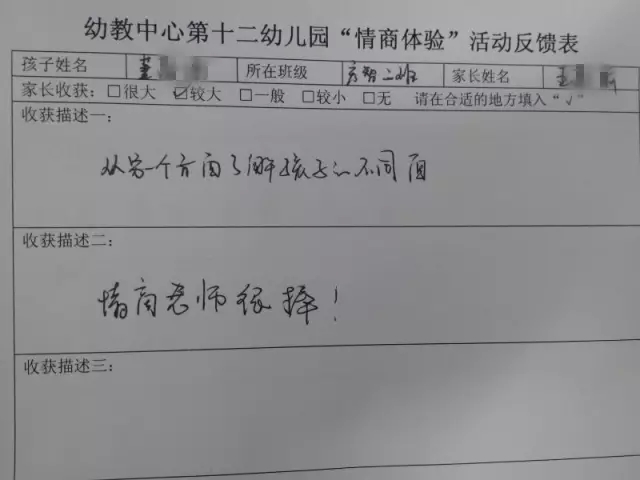 幼教中心第十二幼儿园“情商体验”活动反馈表
孩子姓名 董 所在班级 二班 家长姓名 王
家长收获：□很大 ☑较大 □一般 □较小 □无 请在合适的地方填入“√”
收获描述一：
从另一个方面了解孩子的不同面
收获描述二：
情商老师很棒！
收获描述三：